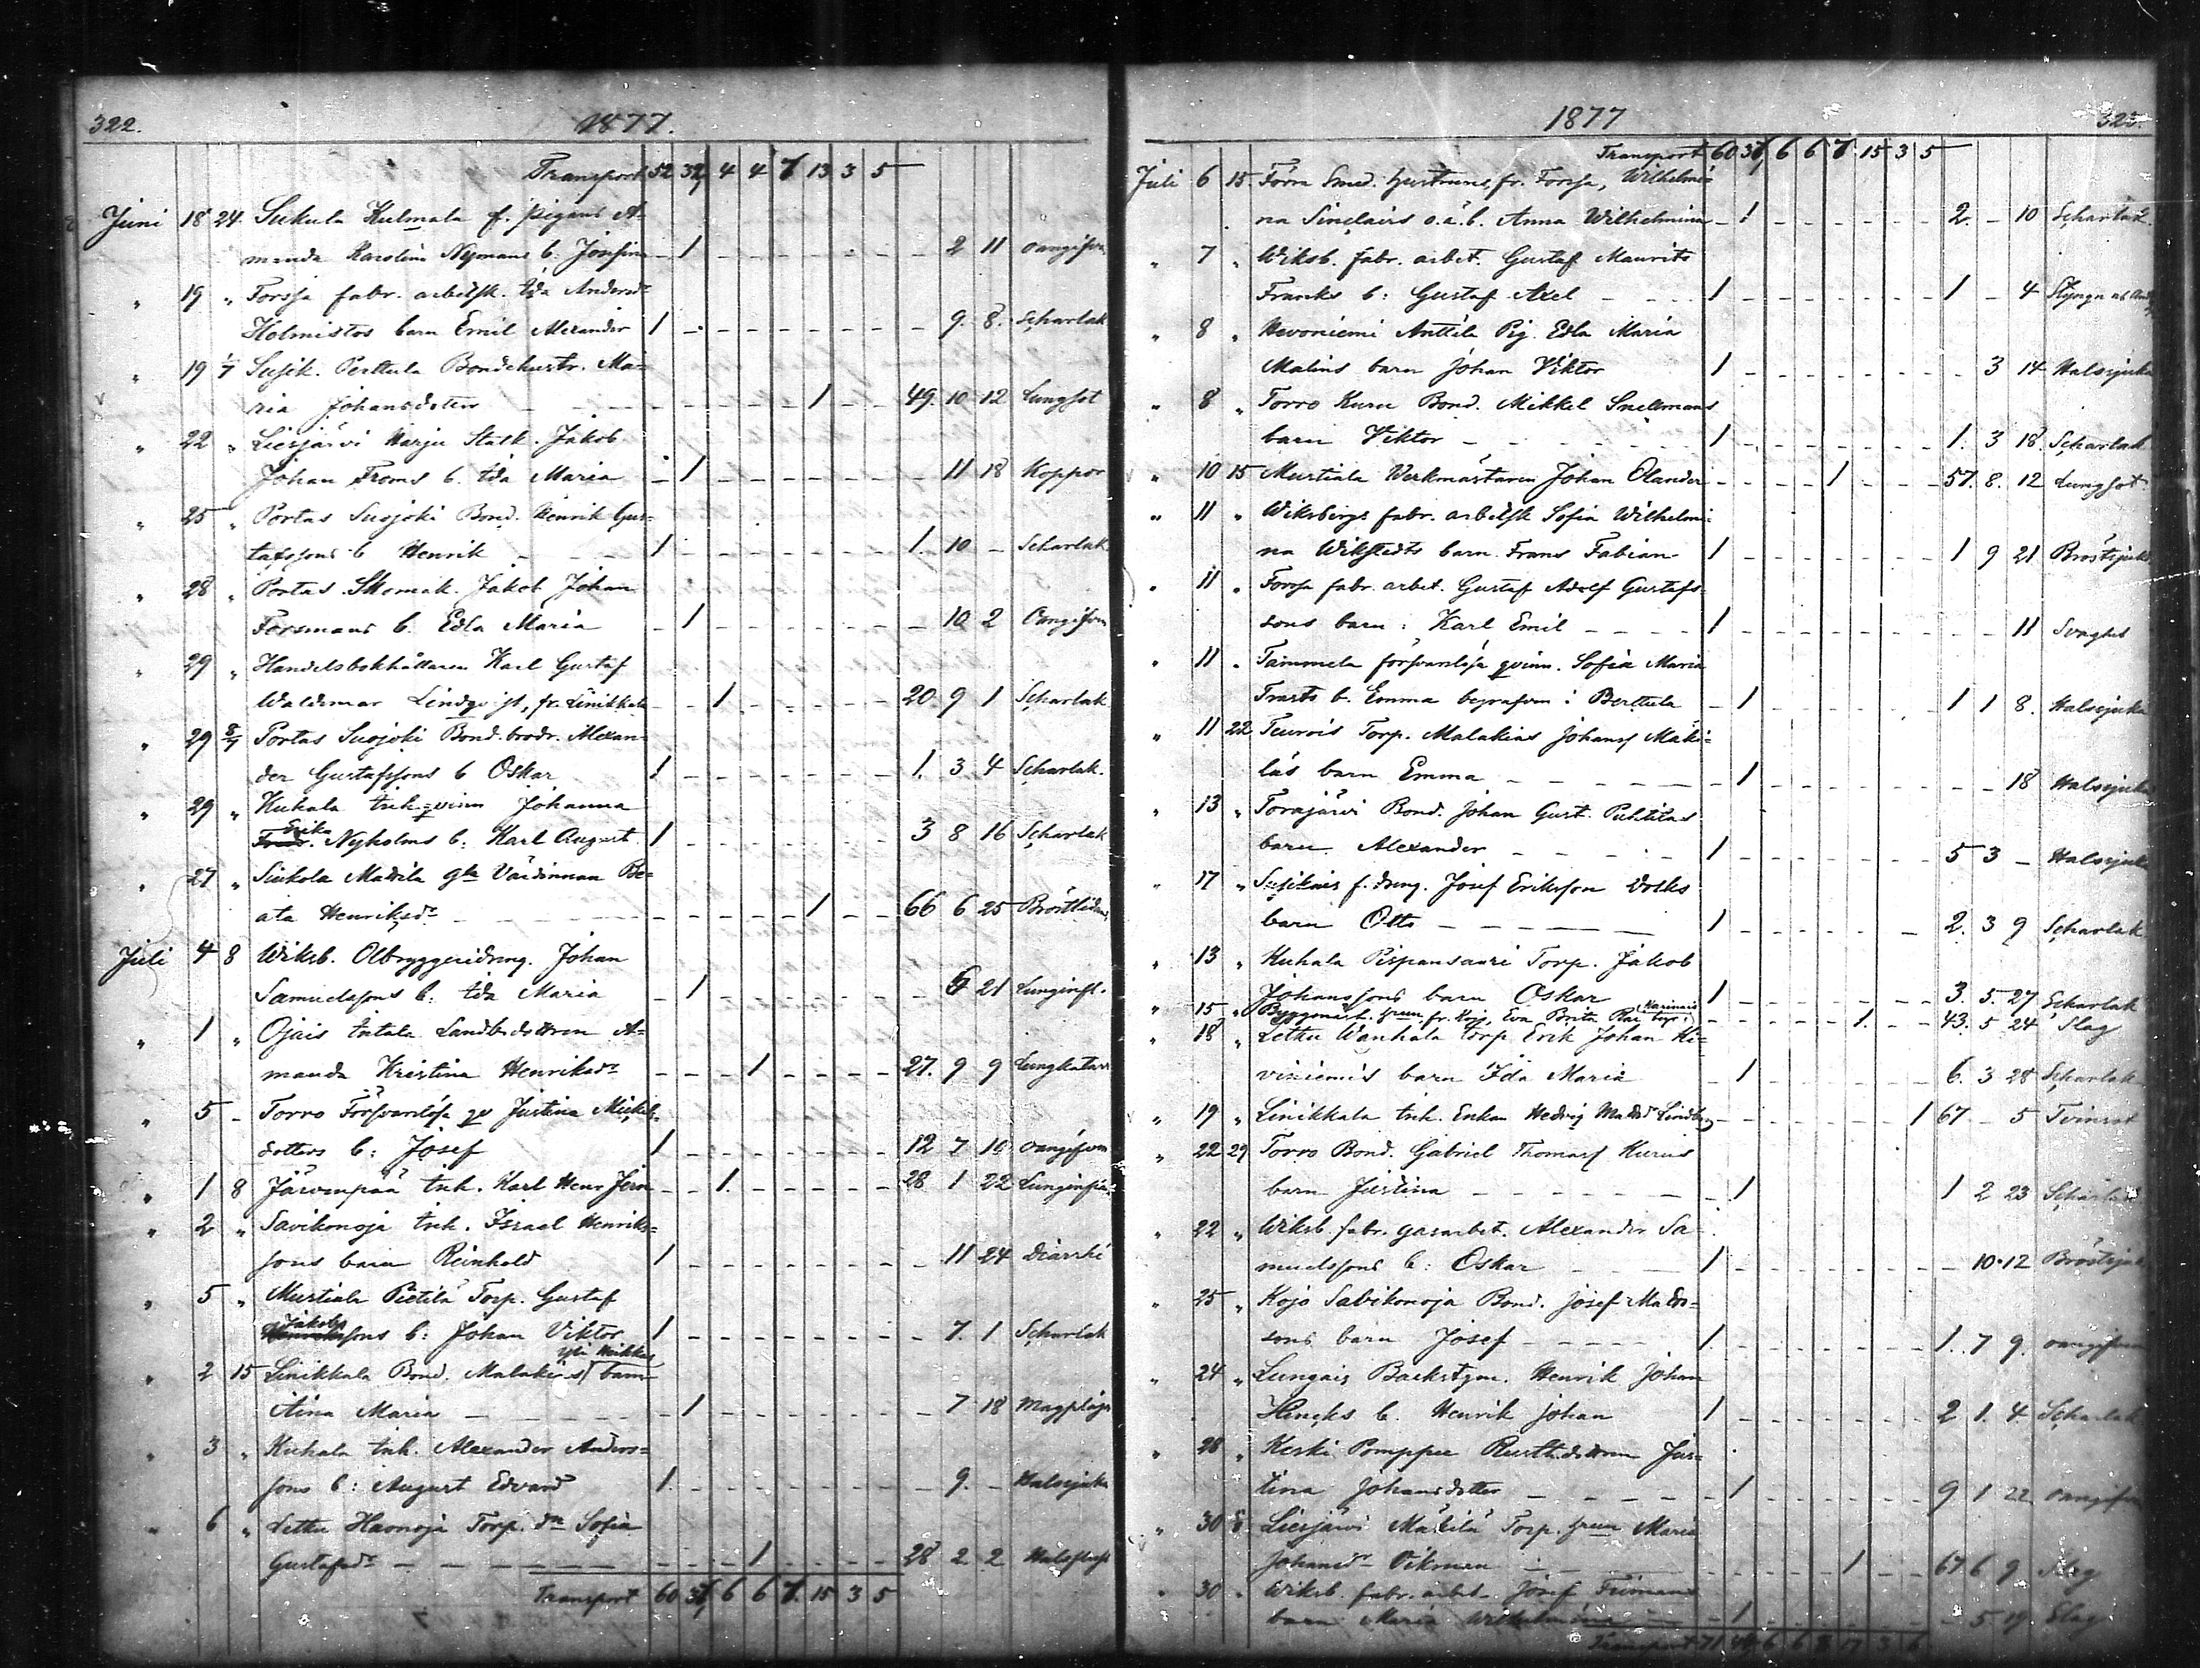 322.
1877.
Transport 52 32 4 4 7 13 3 5
Juni 18 24. Sukula Kulmala f. pigans A-
manda Karolina Nymans b. Josefina - 1 - - - - - - 2 11 oangifven
" 19 " Forssa fabr. arbetsk. Ida Andersdr
Holmistos barn Emil Alexander 1 - - - - - - 9. 8. Scharlak
" 19 1/7 Susik. Perttula Bondehustr. Ma-
ria Johansdotter - - - - - - 1 - - 49. 10 12 Lungsot
" 22 " Liesjärvi Harju Statk. Jakob
Johan Froms b. Ida Maria - 1 - - - - - - 11 18 Koppor
" 25 " Portas Susjoki Bond. Henrik Gus-
tafssons b Henrik - - - 1 - - - - - - 1. 10 - Scharlak
" 28 " Portas Skomak. Jakob Johan
Forsmans b. Edla Maria - 1 - - - - - - 10 2 Oangifven
" 29 " Handelsbokhållaren Karl Gustaf
Waldemar Lindqvist, fr. Linikkala - - 1 - - - - - 20 9 1 Scharlak
" 29 8/7 Portas Susjoki Bond. brodr. Alexan-
der Gustafssons b Oskar 1 - - - - - - 1. 3 4 Scharlak.
" 29 " Kuhala inh. qvinn Johanna
Erika Nyholms b: Karl August 1 - - - - - - 3 8 16 Scharlak
" 27 " Siukola Mattila gla Värdinnan Be-
ata Henriksdr - - - - - - 1 - - 66 6 25 Bröstlidande
Juli 4 8 Wiksb. Ölbryggeridräng. Johan
Samuelssons b: Ida Maria - 1 - - - - - - 6 21 Lunginfl.
" 1 " Ojais Intala Landbodottren A-
manda Kristina Henriksdr - - - 1 - - - - 27. 9 9 Lungkatarr
" 5 - Torro Försvarslösa qv Justina Mickels-
dotters b: Josef 1 - - - - - - 12 7 10 oangifven
" 1 8 Järvenpää inh. Karl Henr Jern - - 1. - - - - - 28 1 22 Lunginfla.
" 2 " Savikonoja inh. Israel Henriks-
sons barn Reinhold 1 - - - - - - 11 24 Diarrhé
" 5 " Murtiala Pietilä Torp. Gustaf
Jakobs sons b: Johan Viktor 1 - - - - - - 7. 1 Scharlak
yli Heikkas
" 2 15 Linikkala Bond. Malakias barn
Aina Maria - - - - 1 - - - - - - 7 18 Magplåga
" 3 " Kuhala inh. Alexander Anders-
sons b: August Edvard 1. - - - - - - 9. - Halssjuka
" 6 " Lettu Haonoja Torp. dr Sofia
Gustafsdr - - - - - - 1 - - - - 28 2 2 Halsfluss
Transport 60 36 6 6 7. 15 3 5
1877
323.
Transport 60 36 6 6 7. 15 3 5
Juli 6 15. Forra Smed. hustruns fr. Forssa, Wilhelmi-
na Sinclairs o.ä.b. Anna Wilhelmina - 1 - - - - - - 2. - 10 Scharlak.
" 7 " Wiksb. fabr. arbet. Gustaf Maurits
Franks b: Gustaf Axel - - - 1 - - - - - - 1 - 4
" 8 " Hevoniemi Anttila Pig. Edla Maria
Malins barn Johan Viktor 1 - - - - - - 3 14 Halssjuka
" 8 " Torro Kuru Bond. Mikkel Snellmans
barn Viktor - - - - 1 - - - - - - 1. 3 18. Scharlak
" 10 15 Murtiala Verkmästaren Johan Olander - - - - 1 - - - 57. 8. 12 Lungsot.
" 11 " Wiksbergs fabr. arbetsk Sofia Wilhelmi-
na Wikstedts barn Frans Fabian 1 - - - - - - 1 9 21 Bröstsjuka
" 11 " Forssa fabr. arbet. Gustaf Adolf Gustafs-
sons barn: Karl Emil - - - 1 - - - - - - 11 Svaghet
" 11 " Tammela försvarslösa qvinn. Sofia Maria
Trasts b. Emma begrafven i Berttula - 1 - - - - - - 1 1 8. Halssjuka
" 11 22 Teuvois Torp. Malakias Johanss Mäki-
läs barn Emma - - - - 1 - - - - - - 18 Halssjuka
" 13 " Torajärvi Bond. Johan Gust. Puhtilas
barn Alexander - - - 1 - - - - - - 5 3 - Halssjuka
" 17 " Susikais f. dreng. Josef Eriksson Volks
barn Otto - - - - 1 - - - - - - 2. 3 9 Scharlak
" 13 " Kuhala Pispansaari Torp. Jakob
Johanssons barn Oskar 1 - - - - - - 3. 5. 27 Scharlak
" 15 " Byggmäst. hrun fr. Kojo, Eva Brita - - - - - 1. - - 43. 5 24 Slag
" 18 " Lettu Wanhala torp Erik Johan Ki-
viniemis barn Ida Maria - 1 - - - - - - 6. 3 28 Scharlak
" 19 " Linikkala inh. Enkan Hedvig Mattsdr Lindberg - - - - - - - 1 67 - 5 Tvinsot
" 22 29 Torro Bond. Gabriel Thomass Kurus
barn Justina - - - - - 1 - - - - - - 1 2 23 Scharlak
" 22 " Wiksb. fabr. gasarbet. Alexander Sa-
muelssons b: Oskar - - 1 - - - - - - 10 12 Bröstsjuk
" 25 " Kojo Savikonoja Bond. Josef Matts-
sons barn Josef - - - - 1. - - - - - - 1. 7 9. oangifven
" 24 " Lungais Backstgm. Henrik Johan
Hincks b. Henrik Johan 1 - - - - - - 2 1. 4 Scharlak
" 28 " Keski Pomppu Rusth.dottren Jus-
tina Johansdotter - - - - 1 - - - - - - 9 1 22 oangifven
" 30 Liesjärvi Mäkilä Torp. hrun Maria
Johansdr Vikman - - - - - 1 - - 67 6 9 Slag
" 30 " Wiksb. fabr. arbet. Josef Frimans
barn Maria Wilhelmina - - 1 - - - - - - 5 19 Slag
Transport 71 6 6 8 17 3 6